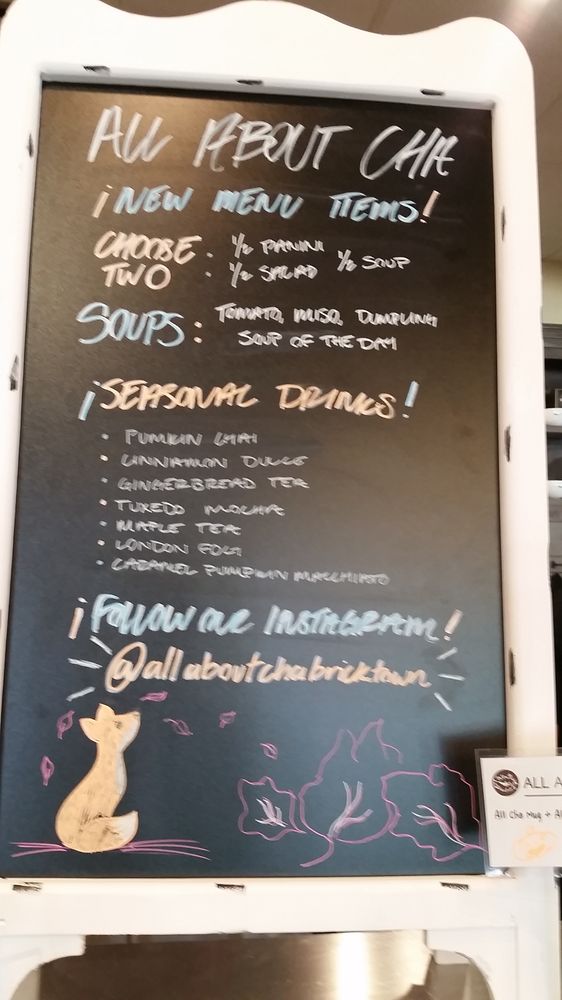 ALL ABOUT CHA
¡NEW MENU ITEMS!
CHOOSE TWO
· 1/2 PANINI
· 1/2 SALAD
1/2 SOUP
SOUPS: TOMATO, MISO, DUMPLING
SOUP OF THE DAY
¡SEASONAL DRINKS!
· PUMKIN CHAI
· CINNAMON DULCE
· GINGERBREAD TEA
· TUXEDO MOCHA
· MAPLE TEA
· LONDON FOG
· CARAMEL PUMPKIN MACCHIATO
¡FOLLOW OUR INSTAGRAM!
@allaboutchabricktown
ALL A
All Cha Mug + Al